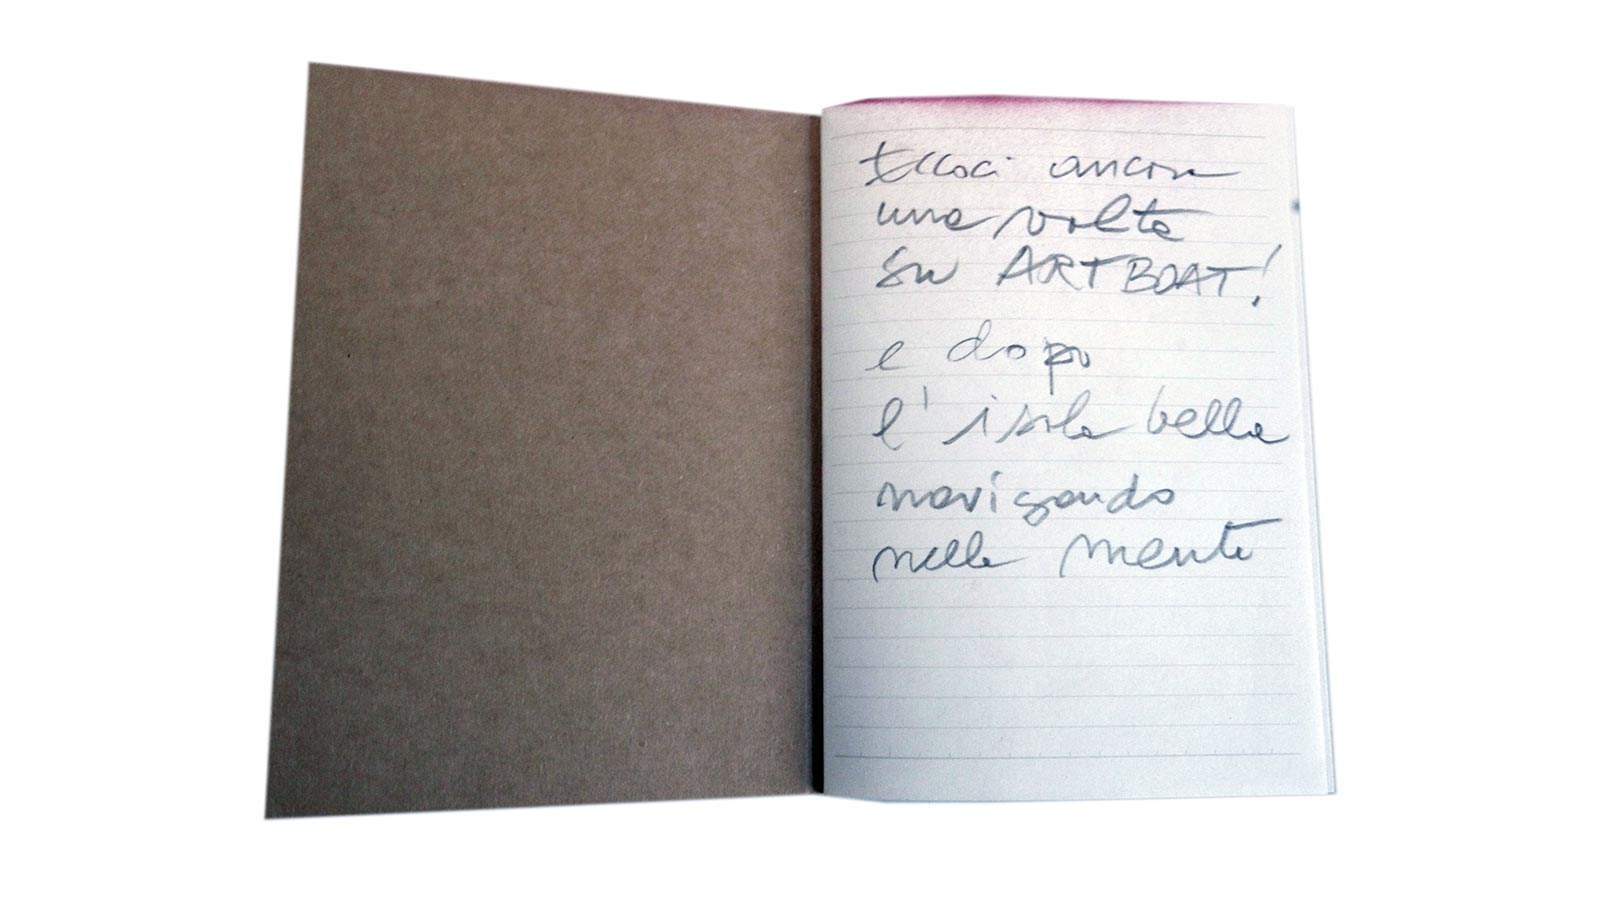 Eccoci ancora
una volta
su ARTBOAT!
e dopo
l'isola bella
navigando
nella mente